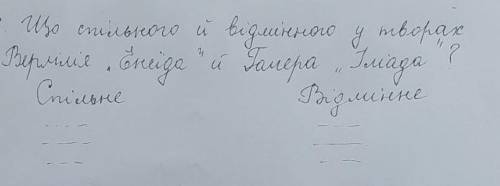 Що спільного й відмінного у творах
Вергілія „Енеїда" й Гомера „Іліада"?
Спільне Відмінне